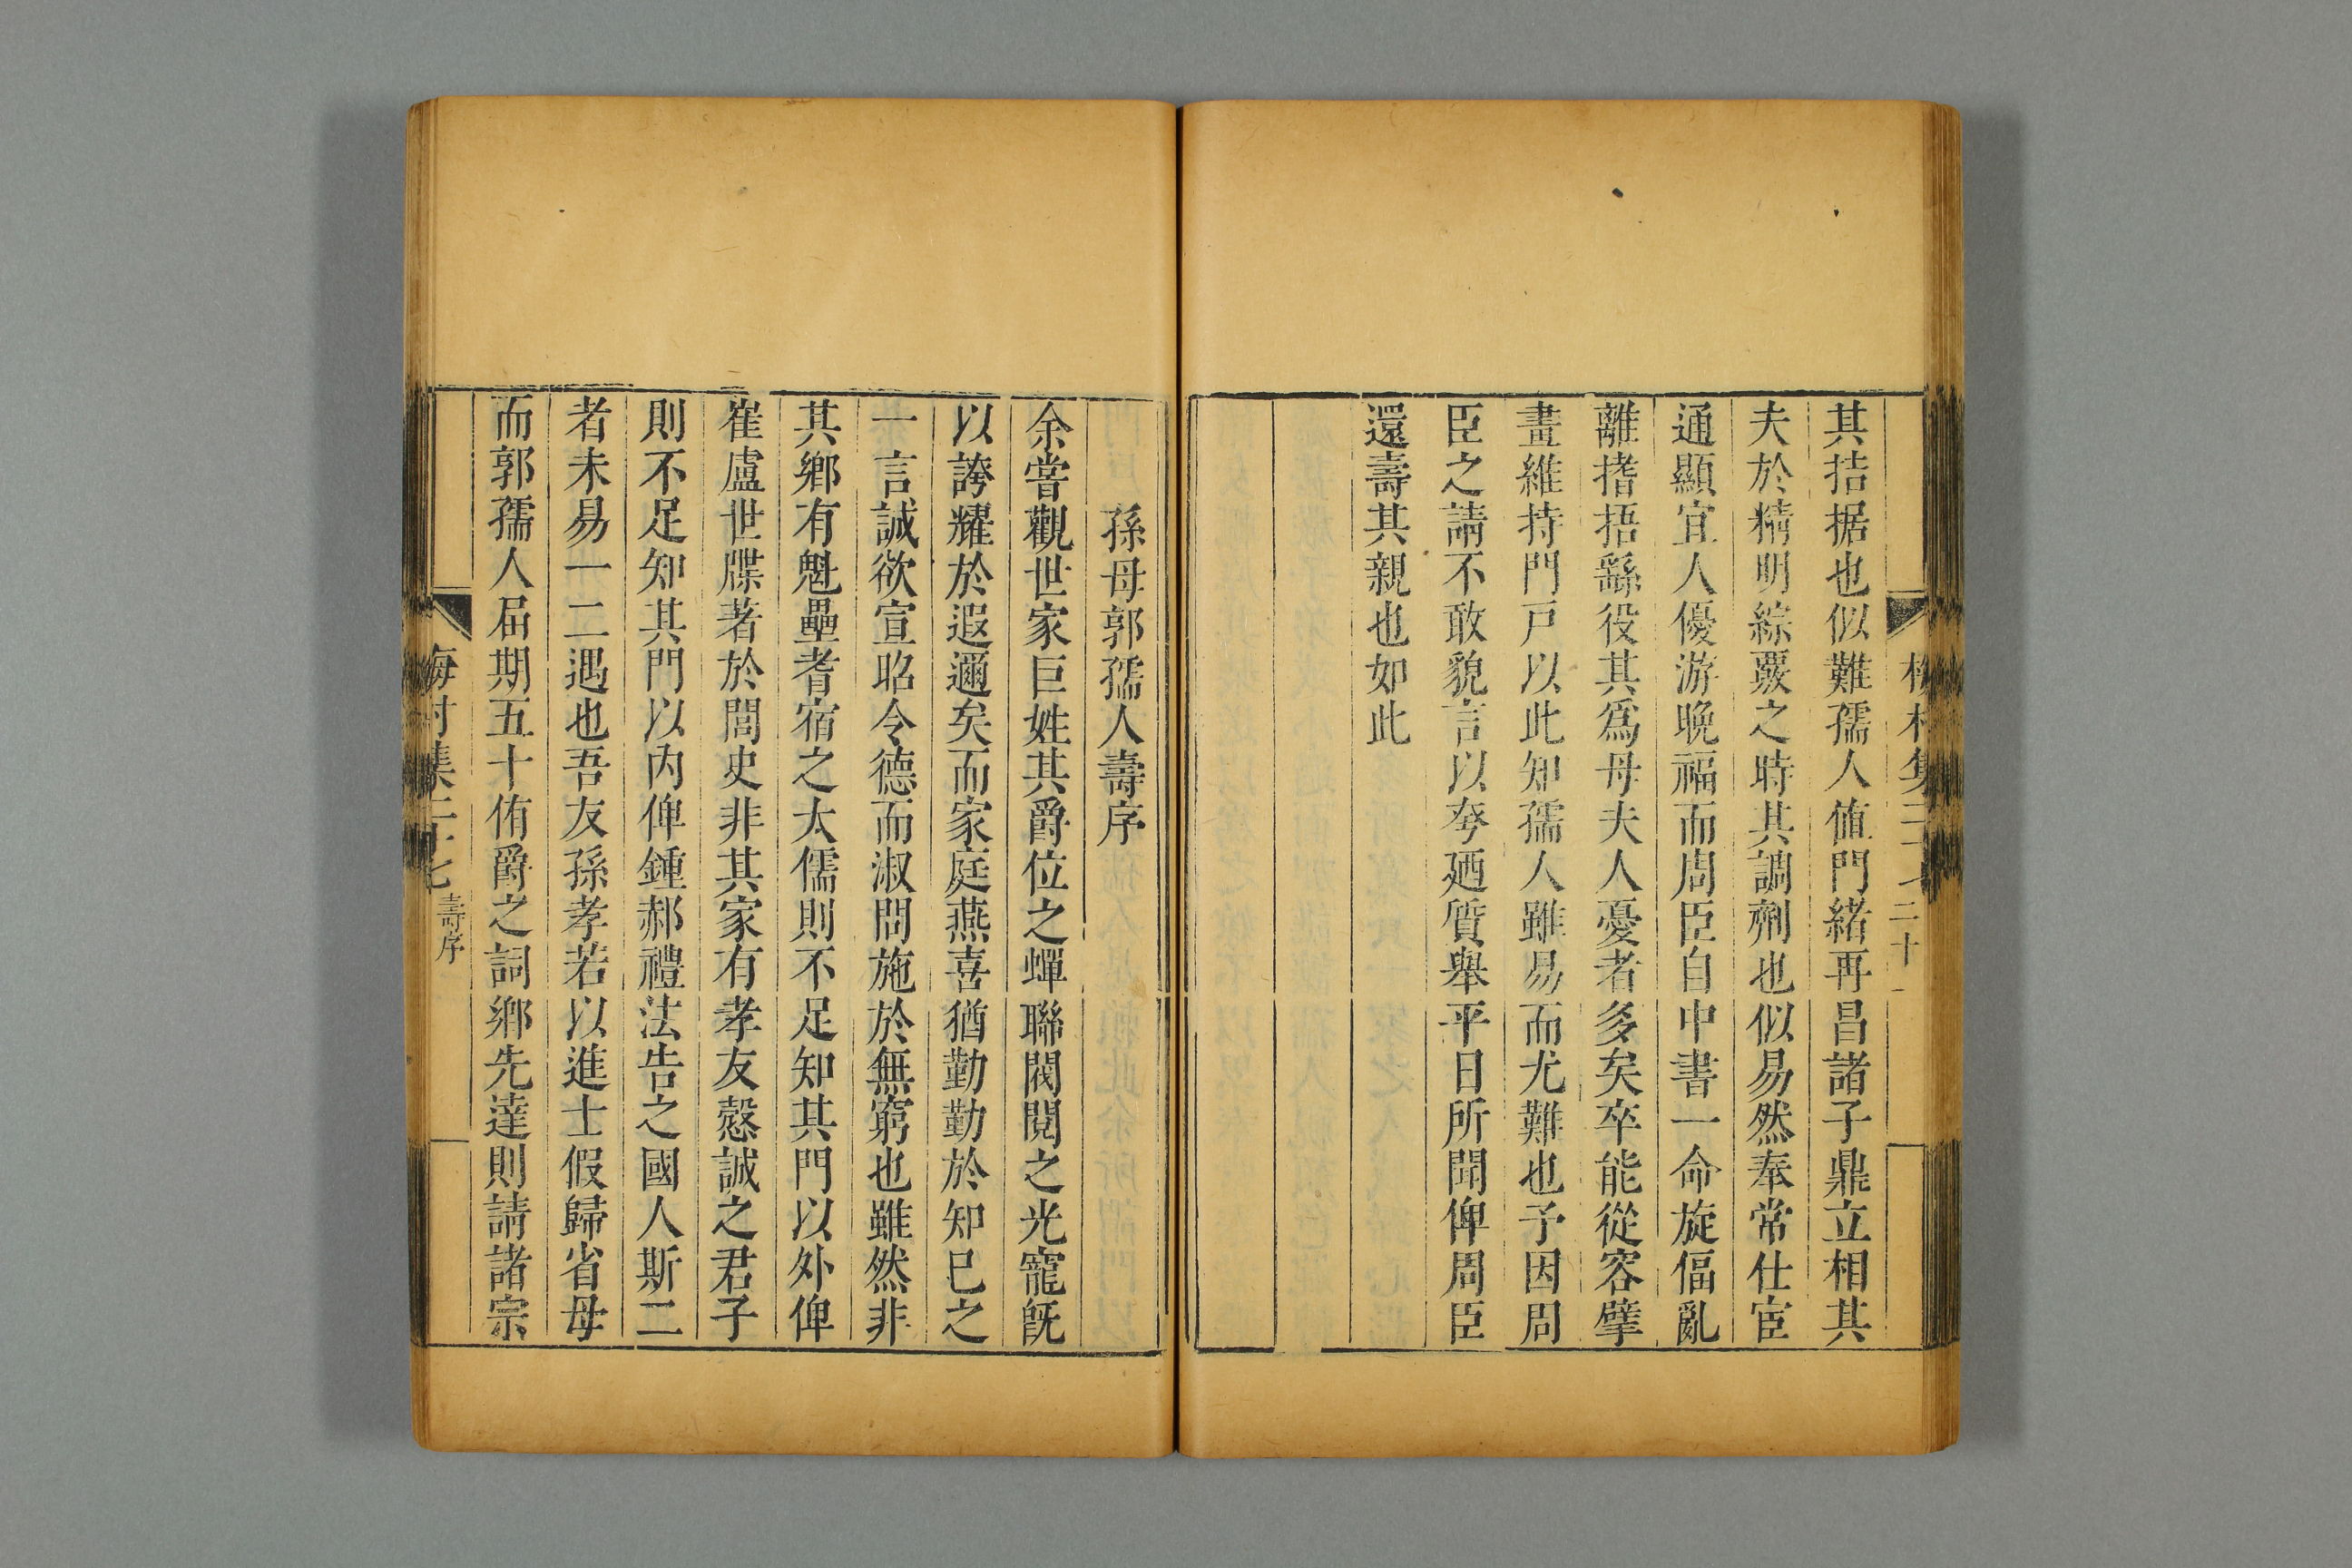 其拮据也似難孺人值門緒再昌諸子鼎立相其
夫於精明綜覈之時其調劑也似易然奉常仕宦
通顯宜人優游晩福而周臣自中書一命旋偪亂
離搘捂繇役其爲母夫人憂者多矣卒能從容擘
畫維持門戸以此知孺人雖易而尤難也予因周
臣之請不敢貌言以夸廼質舉平日所聞俾周臣
還壽其親也如此
二十
孫母郭孺人壽序
余嘗觀世家巨姓其爵位之蟬聯閥閱之光寵旣
以誇耀於遐邇矣而家庭燕喜猶勤勤於知已之
一言誠欲宣昭令德而淑問施於無窮也雖然非
其鄉有魁壘耆宿之大儒則不足知其門以外俾
崔盧世牒著於閭史非其家有孝友愨誠之君子
則不足知其門以內俾鍾郝禮法告之國人斯二
者未易一二遇也吾友孫孝若以進士假歸省母
而郭孺人屆期五十侑爵之詞鄉先達則請諸宗
梅村集二十七
壽序